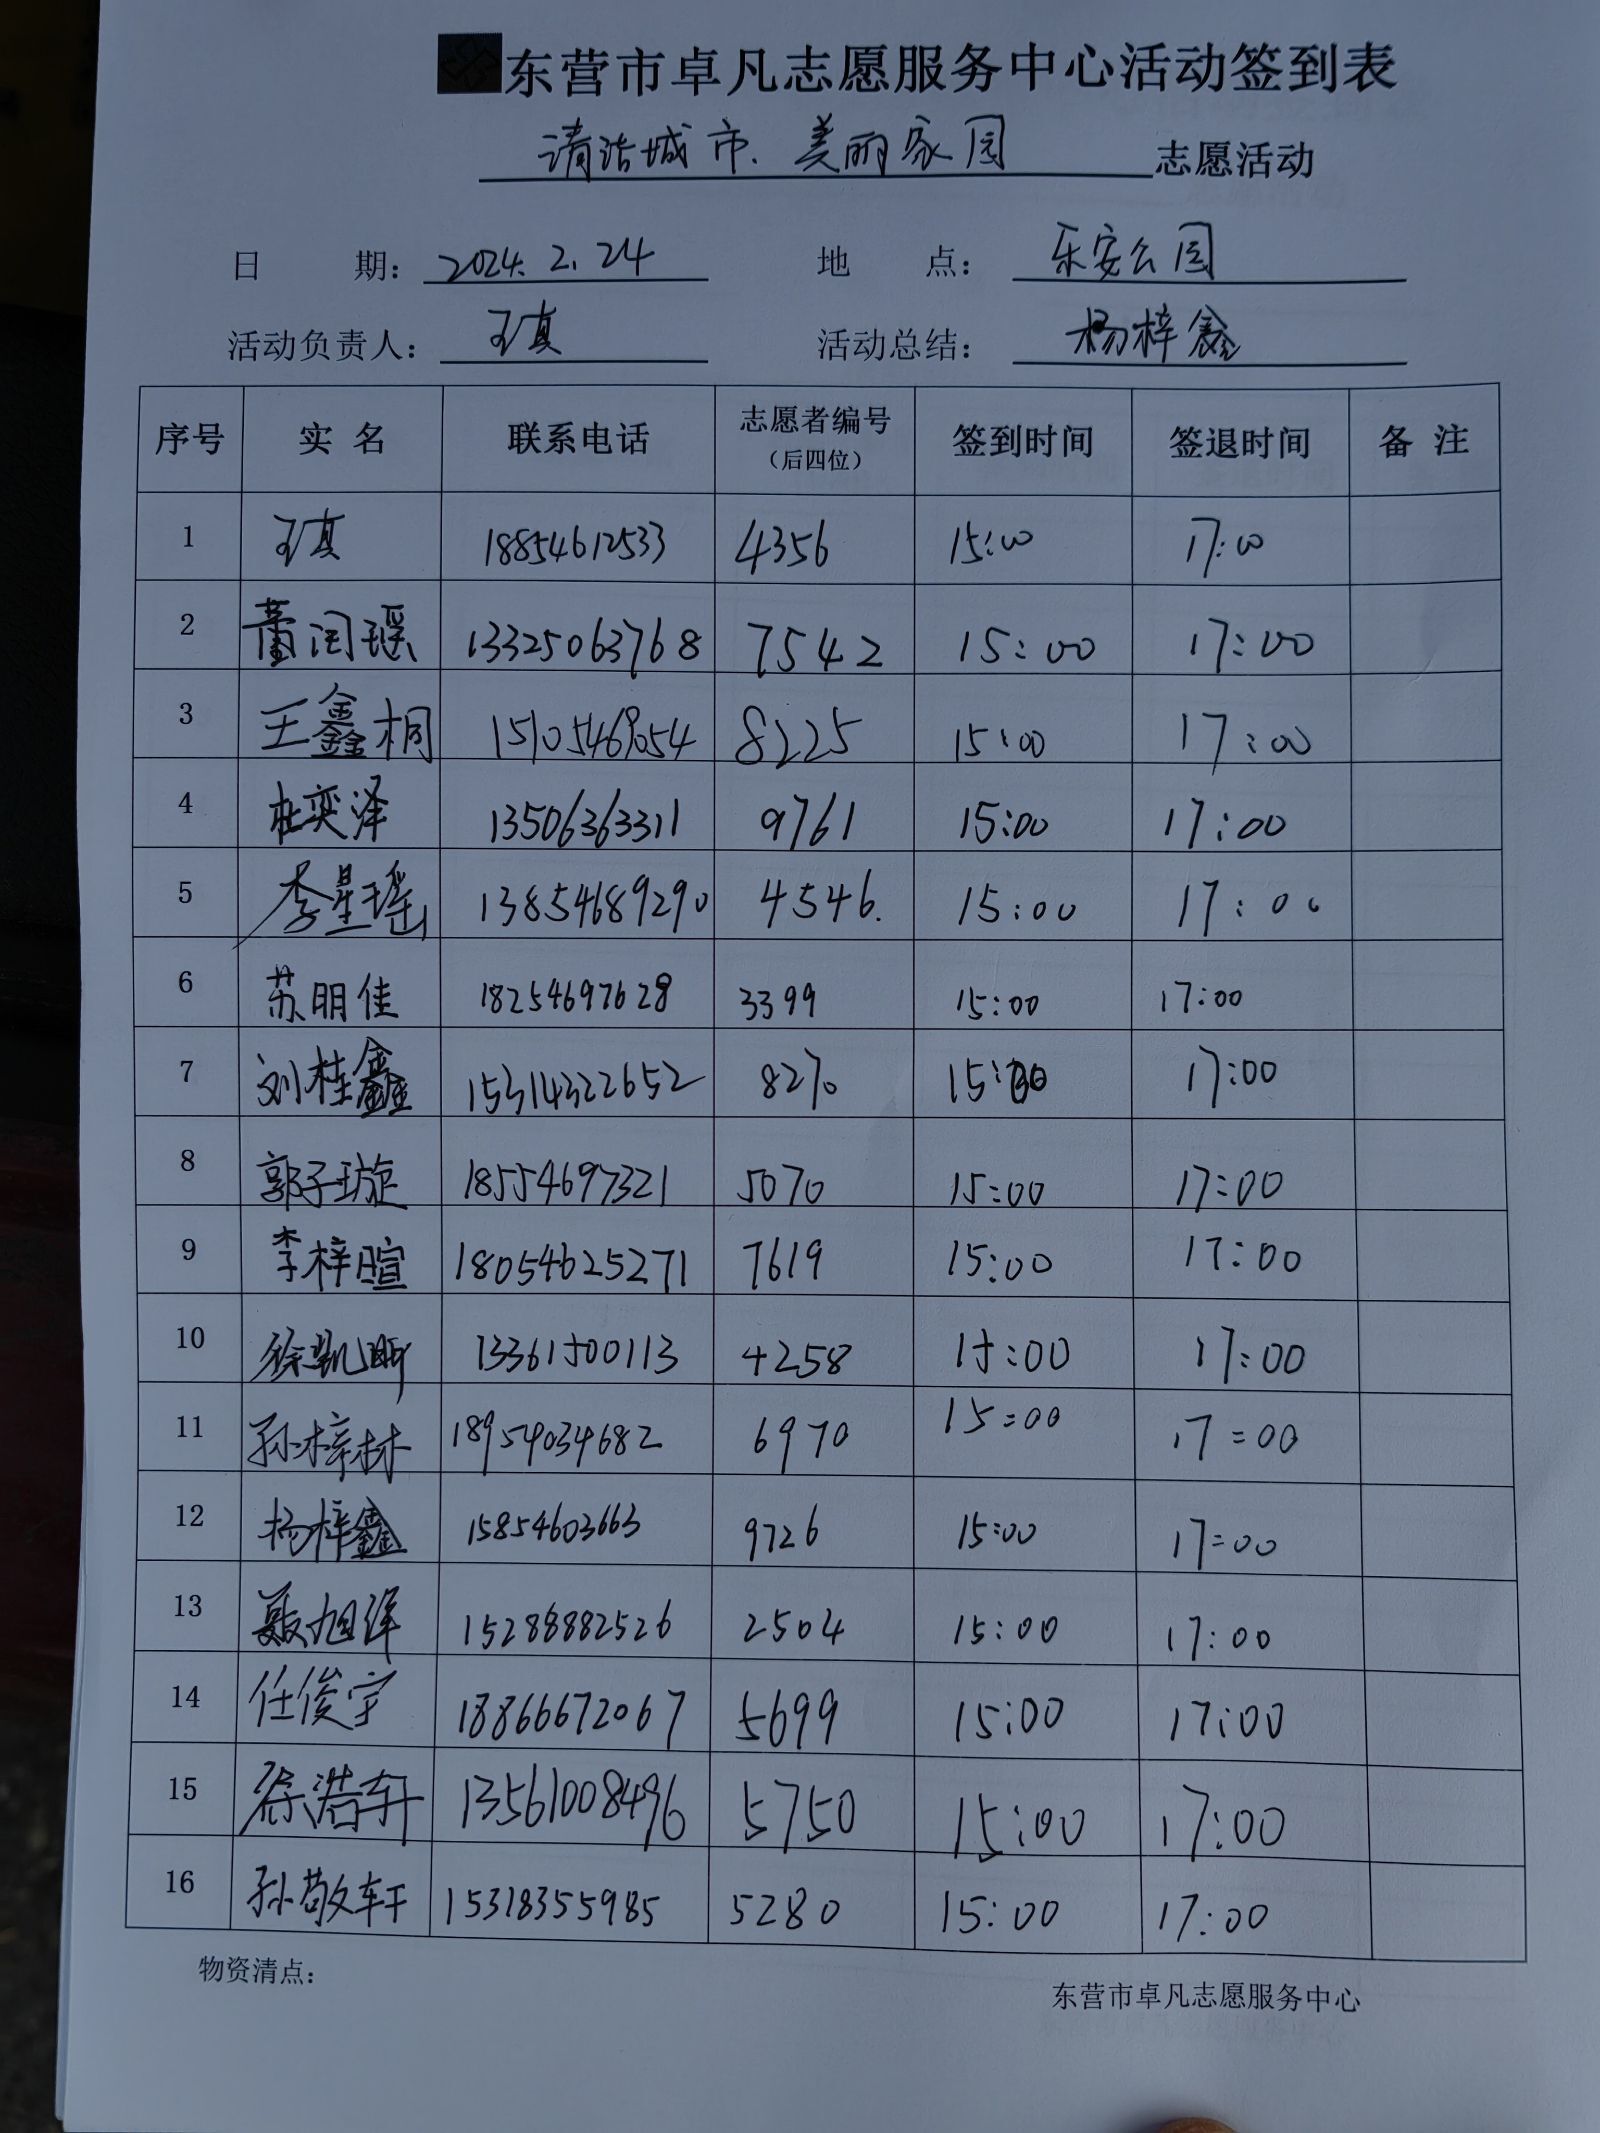 东营市卓凡志愿服务中心活动签到表
清洁城市、美丽家园 志愿活动
日 期: 2024.2.24 地 点: 乐安公园
活动负责人: 王真 活动总结: 杨梓鑫
序号 实名 联系电话 志愿者编号（后四位） 签到时间 签退时间 备注
1 王真 18854612533 4356 15:00 17:00
2 董闰瑶 13325063768 7542 15:00 17:00
3 王鑫桐 15105469054 8225 15:00 17:00
4 杜奕泽 13506363311 9761 15:00 17:00
5 李星瑶 13854689290 4546. 15:00 17:00
6 苏明佳 18254697628 3399 15:00 17:00
7 刘桂鑫 15314322652 8270 15:00 17:00
8 郭子璇 18554697321 5070 15:00 17:00
9 李梓暄 18054625271 7619 15:00 17:00
10 徐凯 13361500113 4258 15:00 17:00
11 孙梓林 18954034682 6970 15:00 17:00
12 杨梓鑫 15854603663 9726 15:00 17:00
13 聂旭洋 15288882526 2504 15:00 17:00
14 任俊宇 18866672067 5699 15:00 17:00
15 徐浩轩 13561008496 5750 15:00 17:00
16 孙敬轩 15318355985 5280 15:00 17:00
物资清点:
东营市卓凡志愿服务中心